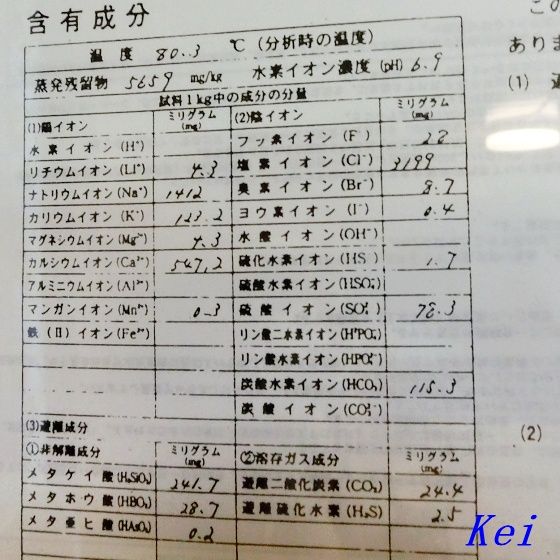 含有成分
温度 80.3 ℃ (分析時の温度)
蒸発残留物 5659 mg/kg 水素イオン濃度 (pH) 6.9
試料1kg中の成分の分量
(1)陽イオン ミリグラム(mg) (2)陰イオン ミリグラム(mg)
水素イオン(H⁺) フッ素イオン(F⁻) 2.8
リチウムイオン(Li⁺) 4.3 塩素イオン(Cl⁻) 3199
ナトリウムイオン(Na⁺) 1412 臭素イオン(Br⁻) 8.7
カリウムイオン(K⁺) 123.2 ヨウ素イオン(I⁻) 0.4
マグネシウムイオン(Mg²⁺) 4.3 水酸イオン(OH⁻)
カルシウムイオン(Ca²⁺) 547.2 硫化水素イオン(HS⁻) 1.7
アルミニウムイオン(Al³⁺) 硫酸水素イオン(HSO₄⁻)
マンガンイオン(Mn²⁺) 0.3 硫酸イオン(SO₄²⁻) 78.3
鉄(II)イオン(Fe²⁺) リン酸二水素イオン(H₂PO₄⁻)
リン酸水素イオン(HPO₄²⁻)
炭酸水素イオン(HCO₃⁻) 115.3
炭酸イオン(CO₃²⁻)
(3)遊離成分
①非解離成分 ミリグラム(mg) ②溶存ガス成分 ミリグラム(mg)
メタケイ酸(H₂SiO₃) 241.7 遊離二酸化炭素(CO₂) 24.4
メタホウ酸(HBO₂) 28.7 遊離硫化水素(H₂S) 2.5
メタ亜ヒ酸(HAsO₂) 0.2
この
ありま
(1)
(2)
Kei